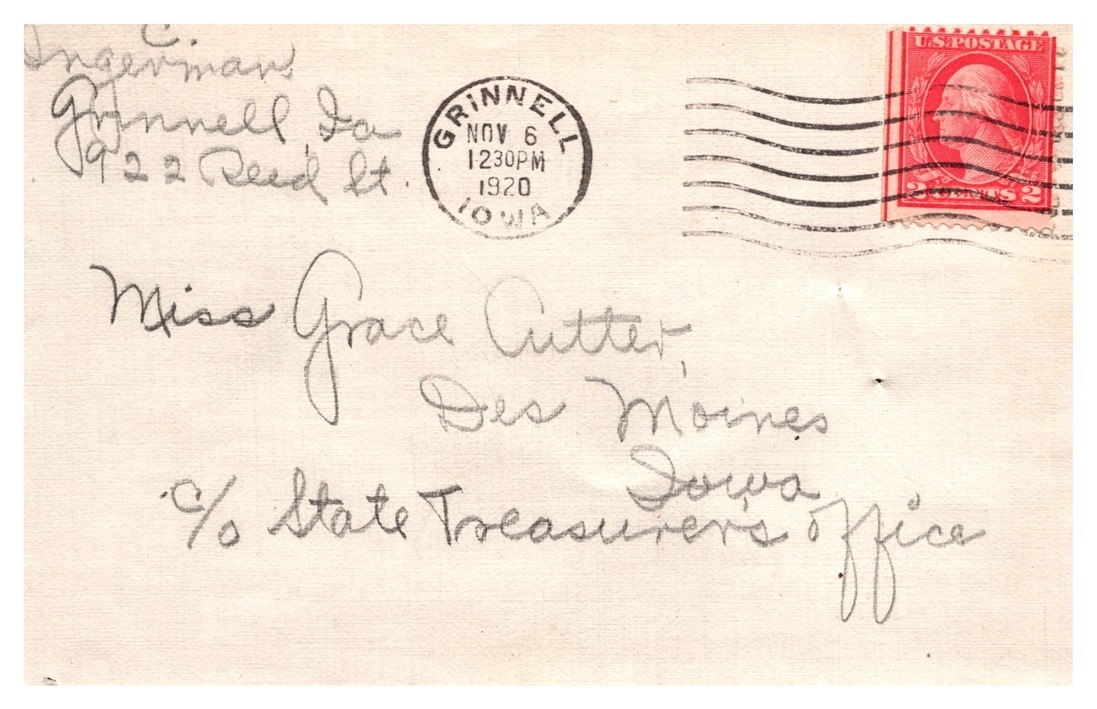 C.
Ingerman
Grinnell, Ia
922 Reed St.
GRINNELL
NOV 6
1230PM
1920
IOWA
U.S. POSTAGE
2 CENTS 2
Miss Grace Cutter,
Des Moines
Iowa
c/o State Treasurer's office